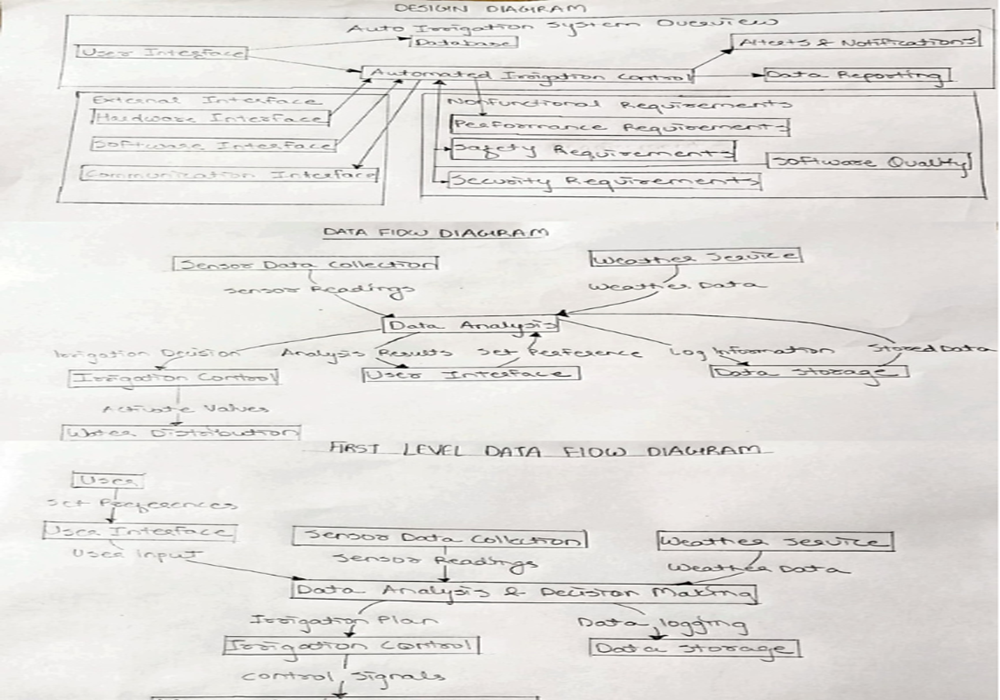 DESIGIN DIAGRAM
Auto Irrigation System Overview
User Interface
Database
Alterts & Notifications
Automated Irrigation Control
Data Reporting
External Interface
Nonfunctional Requirements
Hardware Interface
Performance Requirements
Software Interface
Safety Requirements
Software Quality
Communication Interface
Security Requirements
DATA FLOW DIAGRAM
Sensor Data Collection
Weather Service
Sensor Readings
Weather Data
Data Analysis
Irrigation Decision
Analysis Results
Set Preference
Log Information
Stored Data
Irrigation Control
User Interface
Data Storage
Activate Valves
Water Distribution
FIRST LEVEL DATA FLOW DIAGRAM
User
Set Preferences
User Interface
Sensor Data Collection
Weather Service
User Input
Sensor Readings
Weather Data
Data Analysis & Decision Making
Irrigation Plan
Data logging
Irrigation Control
Data Storage
Control Signals